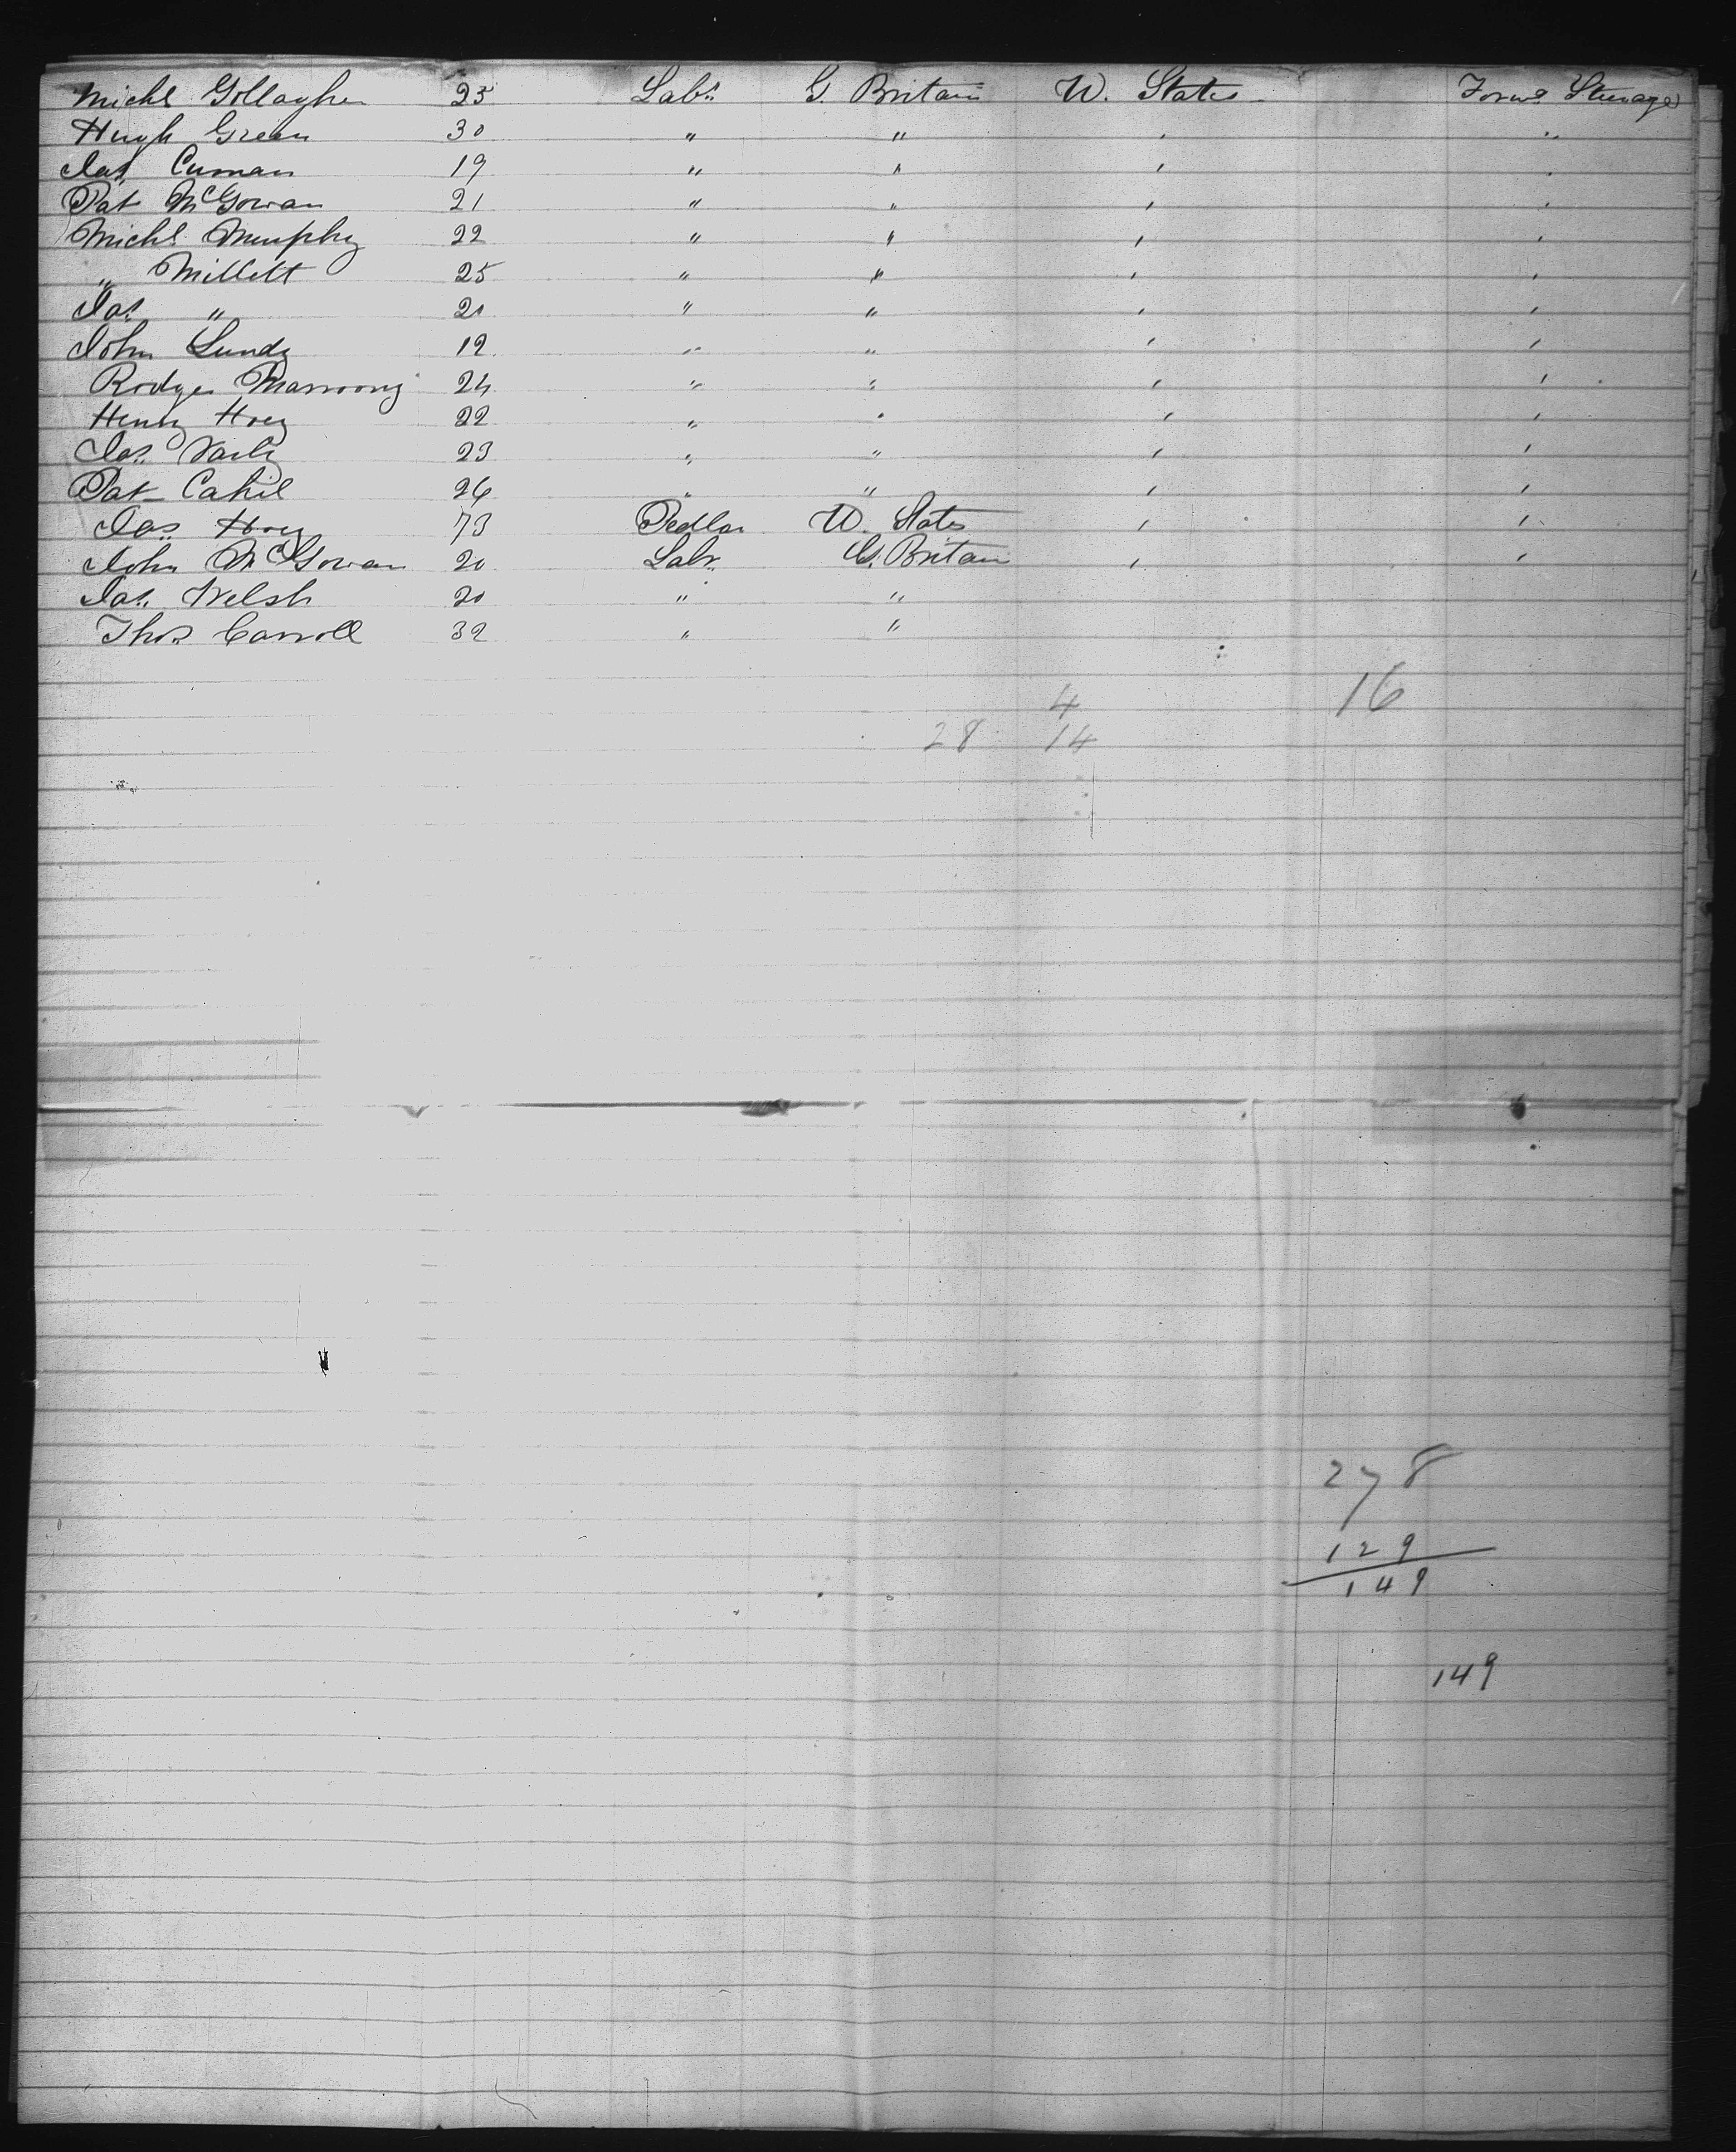 Michl Gollagher 25 Labr. G. Britain U. States Forwd Steerage
Hugh Green 30 " " " "
Jas. Curnan 19 " " " "
Pat McGowan 21 " " " "
Michl Murphy 22 " " " "
" Millett 25 " " " "
Jas. " 20 " " " "
John Lundy 19 " " " "
Rodger 24 " " " "
Henry Hoey 22 " " " "
Jas. 23 " " " "
Pat Cahil 26 " " " "
Jas. Hoey 73 Pedlar U. States " "
John McGowan 20 Labr. G. Britain " "
Jas. Welsh 20 " "
Thos. Carroll 32 " "
4 16
28 14
278
129
149
149